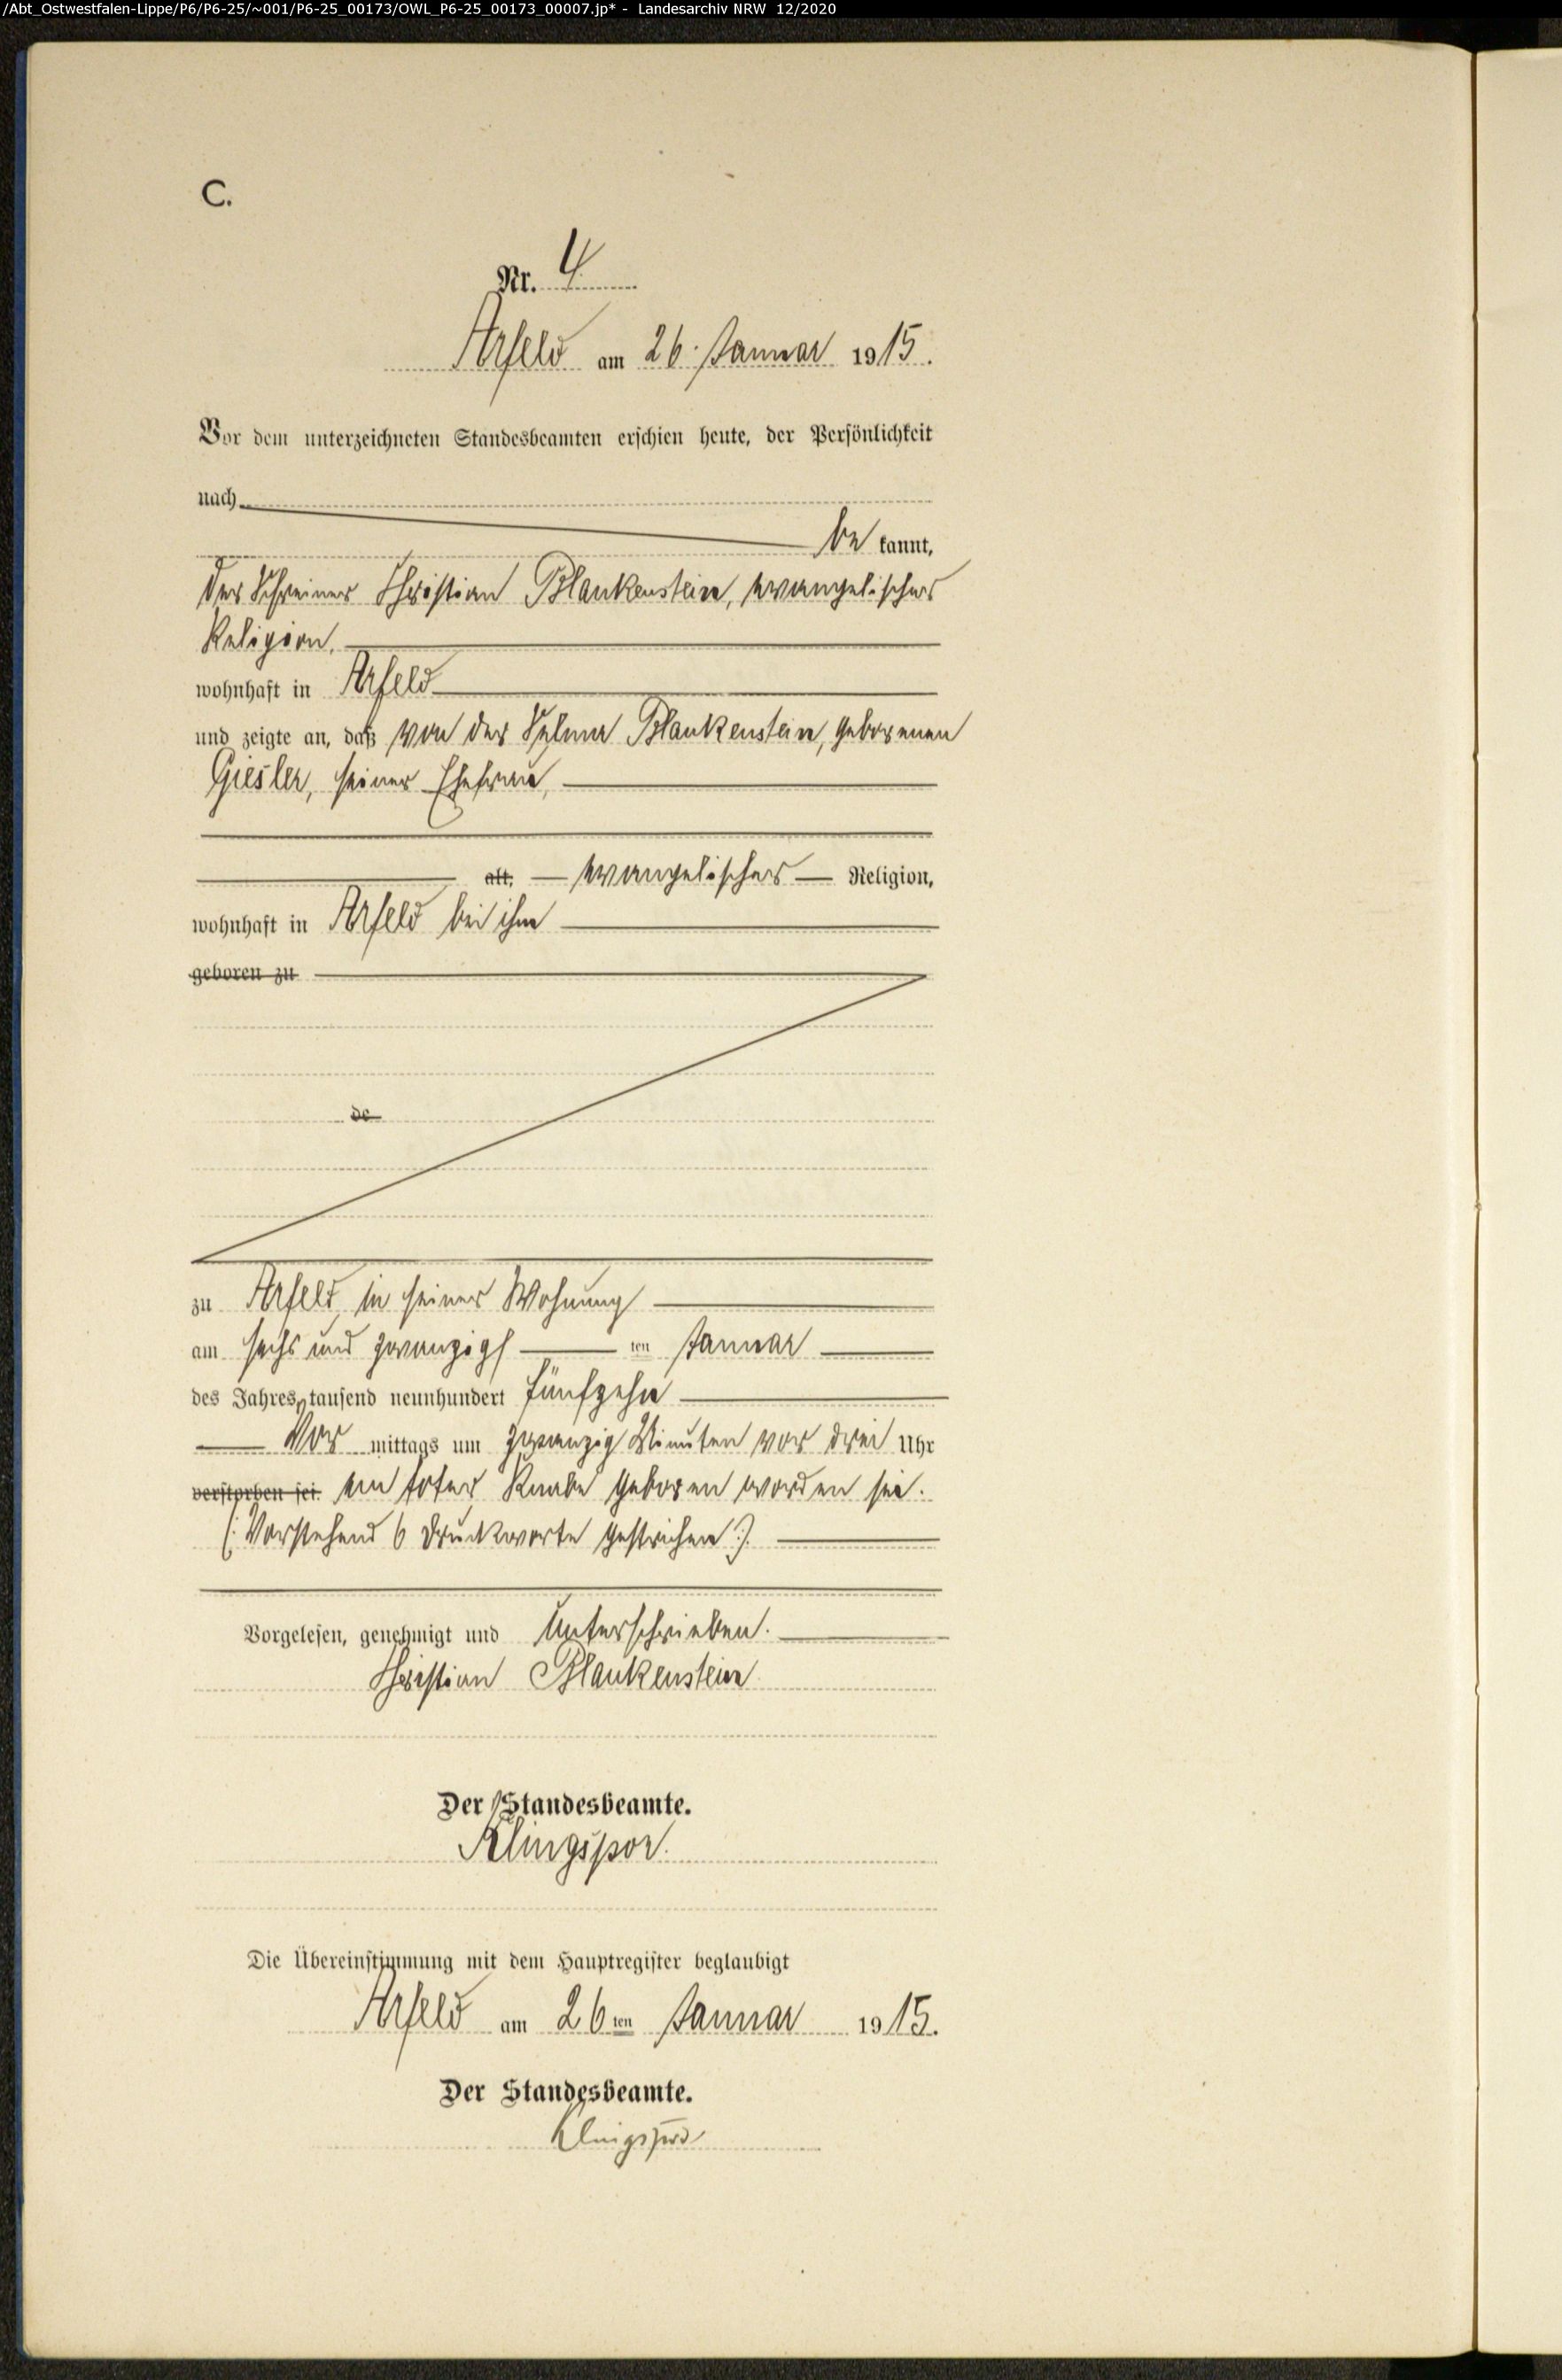 /Abt_Ostwestfalen-Lippe/P6/P6-25/~001/P6-25_00173/OWL_P6-25_00173_00007.jp* - Landesarchiv NRW 12/2020
C.
Nr. 4
Arfeld am 26. Januar 1915.
Vor dem unterzeichneten Standesbeamten erschien heute, der Persönlichkeit
nach
be kannt,
der Schreiner Christian Blankenstein, evangelischer
Religion,
wohnhaft in Arfeld
und zeigte an, daß von der Selma Blankenstein, geborenen
Giesler, seiner Ehefrau,
alt, evangelischer Religion,
wohnhaft in Arfeld bei ihm
geboren zu
de
zu Arfeld in seiner Wohnung
am sechs und zwanzigs ten Januar
des Jahres tausend neunhundert fünfzehn
Vor mittags um zwanzig Minuten vor drei Uhr
verstorben sei. ein toter Knabe geboren worden sei.
(: Vorstehend 6 Druckworte gestrichen :).
Vorgelesen, genehmigt und unterschrieben.
Christian Blankenstein
Der Standesbeamte.
Klingspor.
Die Übereinstimmung mit dem Hauptregister beglaubigt
Arfeld am 26ten Januar 1915.
Der Standesbeamte.
Klingspor